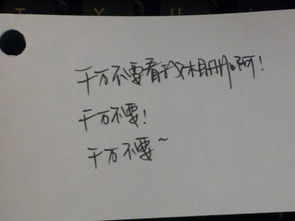 千万不要看我相册啊！
千万不要！
千万不要~